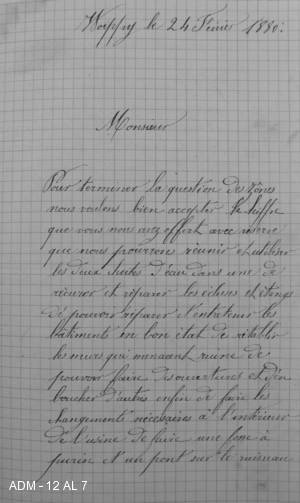 Woippy le 24 Février 1880.
Monsieur
Pour terminer la question des zônes
nous voulons bien accepter le chiffre
que vous nous avez offert avec réserve
que nous pourrons réunir et utiliser
les deux chutes d'eau dans une de
récurer et réparer les écluses et étangs
de pouvoir réparer et entretenir les
bâtiments en bon état de rétablir
les murs qui menacent ruine de
pouvoir faire des ouvertures et d'en
boucher d'autres enfin de faire les
changements nécessaires à l'intérieur
de l'usine de faire une fosse à
purin et un pont sur le ruisseau
ADM - 12 AL 7